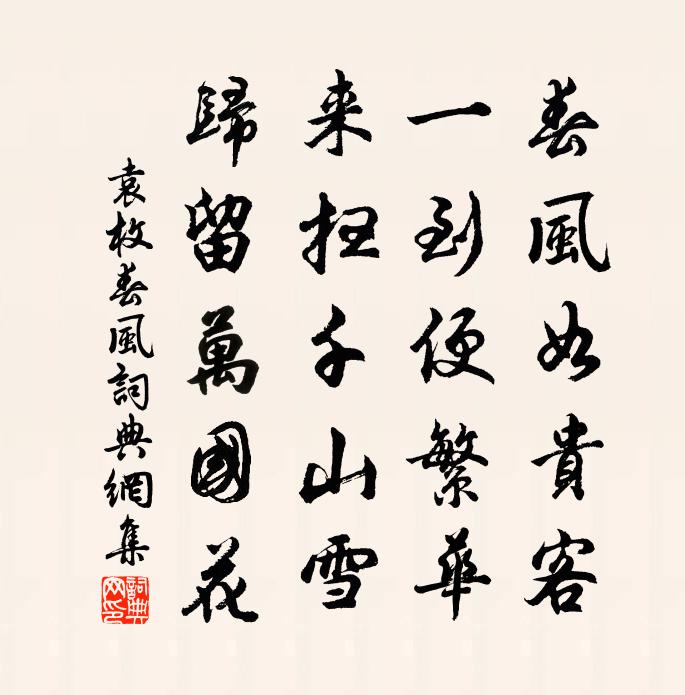 春風如貴客
一到便繁華
来扫千山雪
歸留萬國花
袁枚春風詞典網集
詞典網印